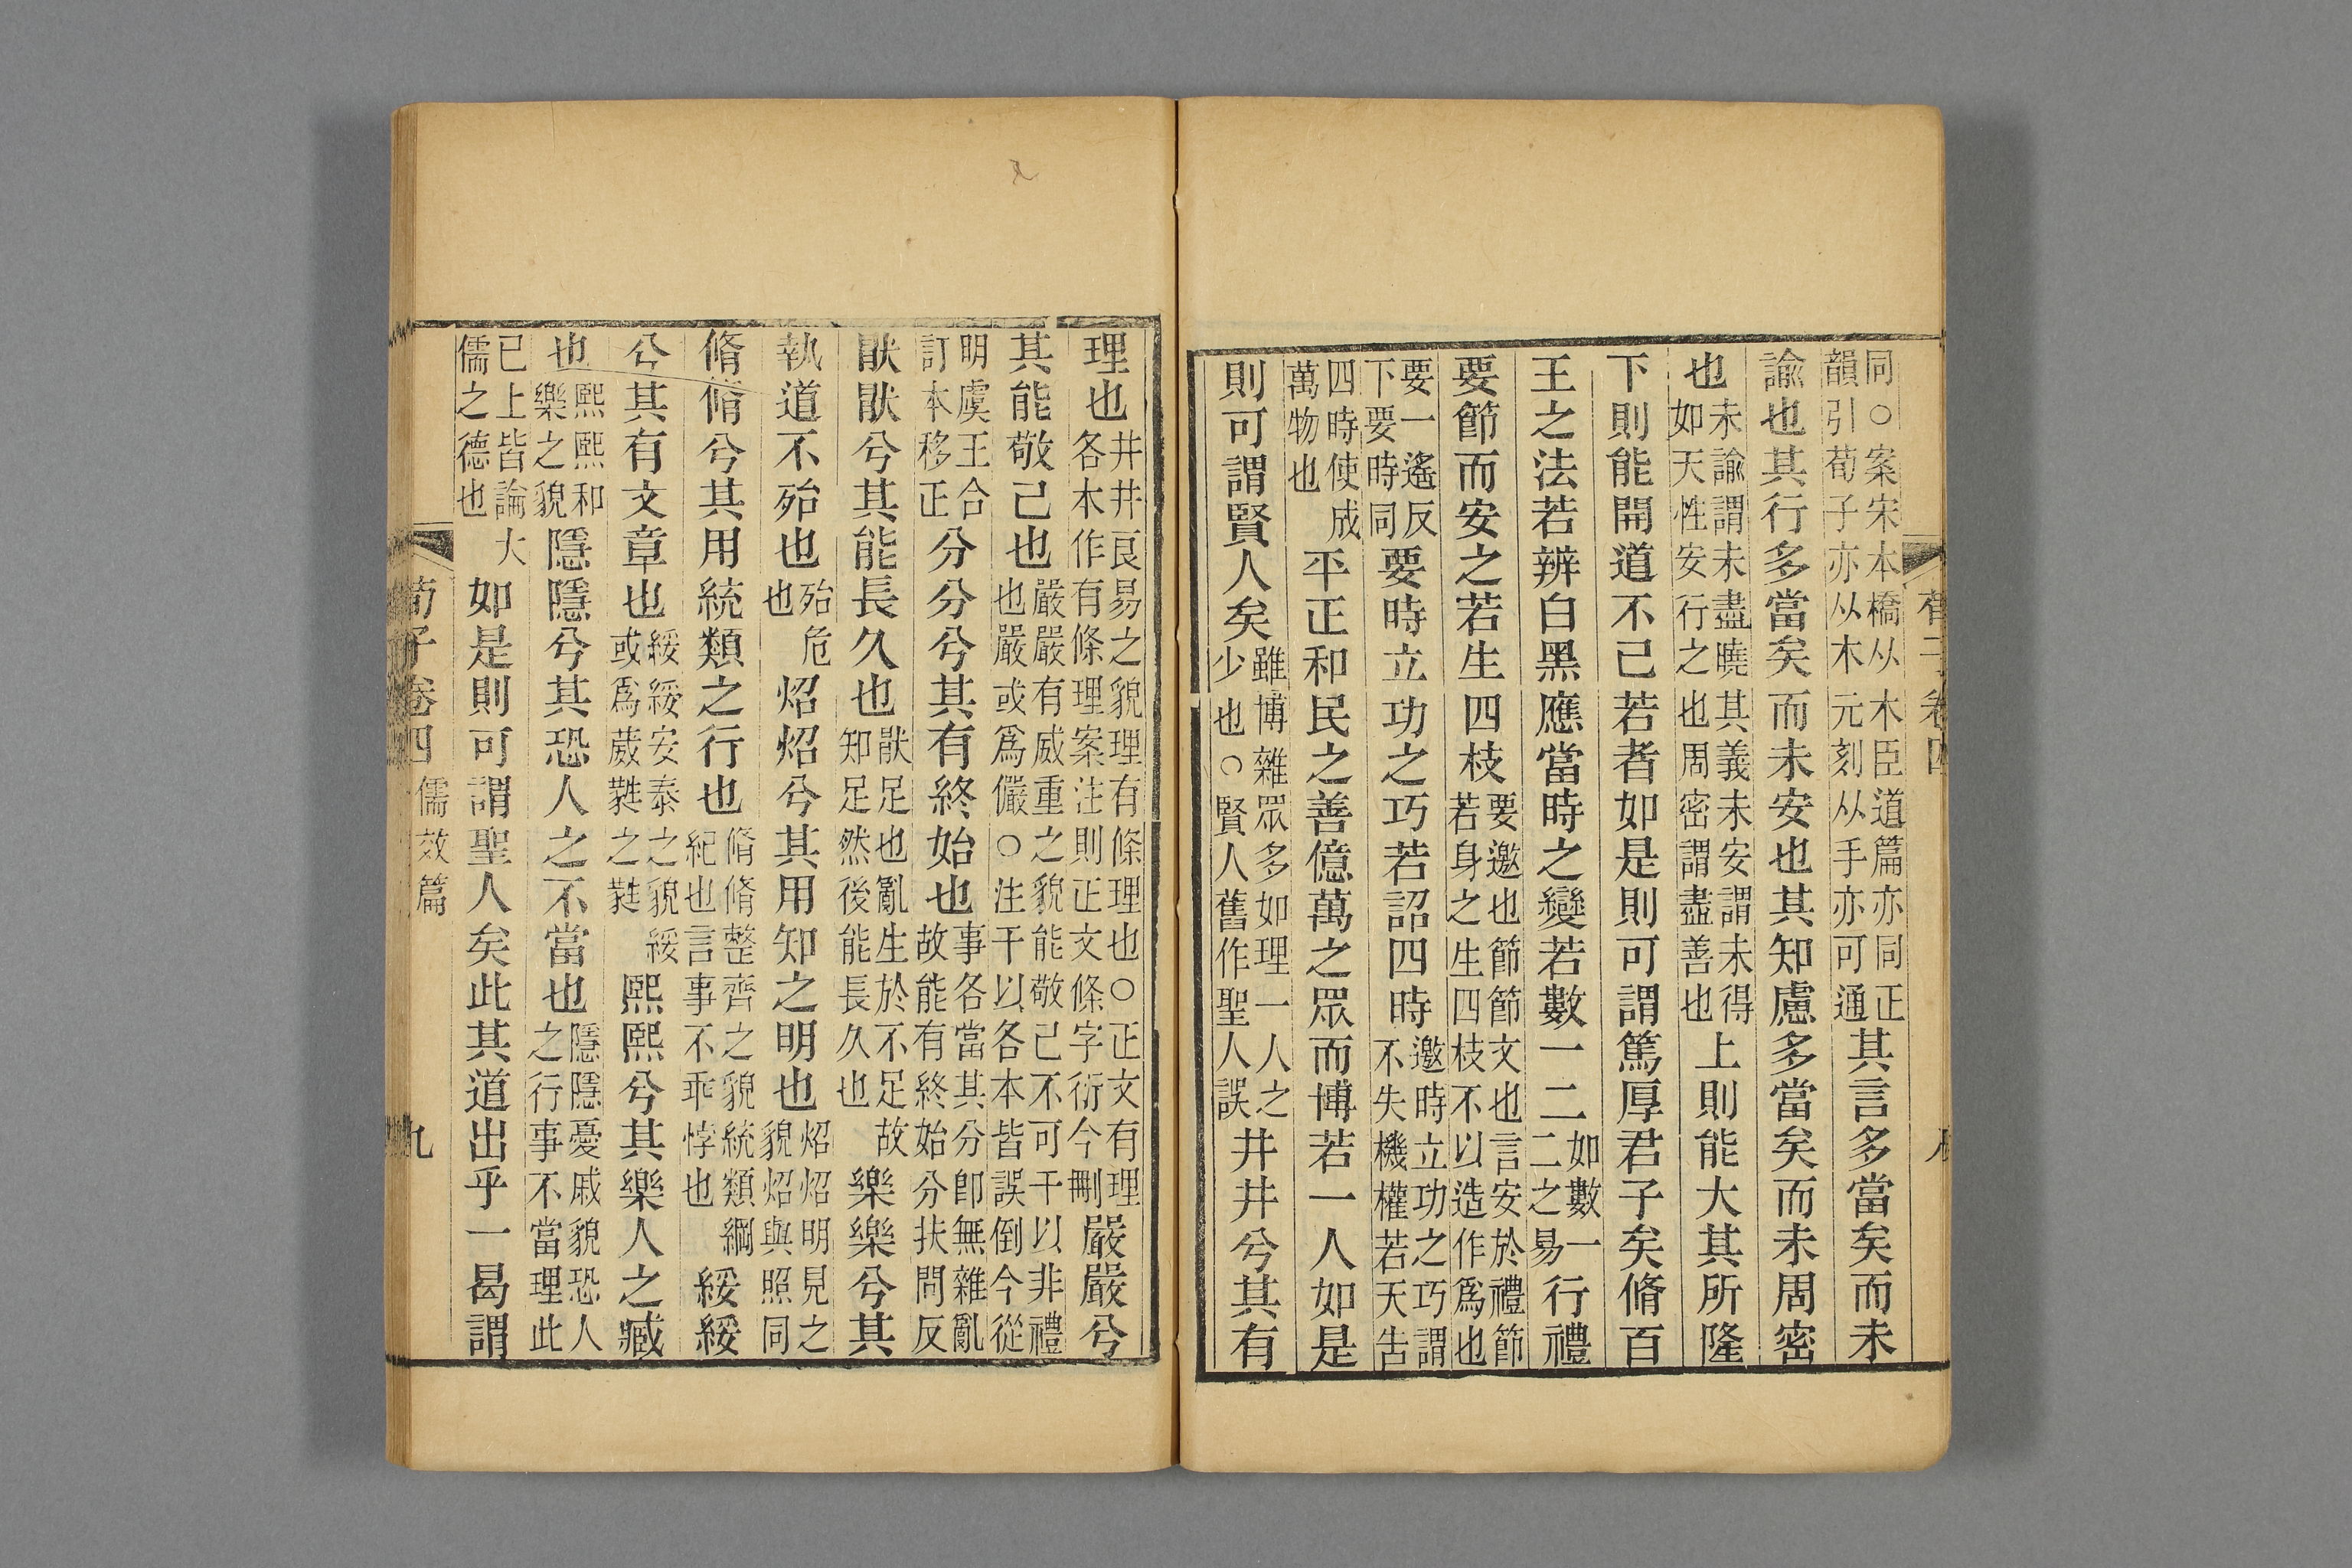 荀子卷四
同○案宋本橋从木臣道篇亦同正韻引荀子亦从木元刻从手亦可通其言多當矣而未
諭也其行多當矣而未安也其知慮多當矣而未周密
也未諭謂未盡曉其義未安謂未得如天性安行之也周密謂盡善也上則能大其所隆
下則能開道不已若者如是則可謂篤厚君子矣脩百
王之法若辨白黑應當時之變若數一二如數一二之易行禮
要節而安之若生四枝要邀也節節文也言安於禮節若身之生四枝不以造作爲也
要一遙反下要時同要時立功之巧若詔四時邀時立功之巧謂不失機權若天吿
四時使成萬物也平正和民之善億萬之眾而博若一人如是
則可謂賢人矣雖博雜眾多如理一人之少也○賢人舊作聖人誤井井兮其有
理也井井良易之貌理有條理也○正文有理各本作有條理案注則正文條字衍今刪嚴嚴兮
其能敬己也嚴嚴有威重之貌能敬己不可干以非禮也嚴或爲儼○注干以各本皆誤倒今從
明虞王合訂本移正分分兮其有終始也事各當其分卽無雜亂故能有終始分扶問反
猒猒兮其能長久也猒足也亂生於不足故知足然後能長久也樂樂兮其
執道不殆也殆危也炤炤兮其用知之明也炤炤明見之貌炤與照同
脩脩兮其用統類之行也脩脩整齊之貌統類綱紀也言事不乖悖也綏綏
兮其有文章也綏綏安泰之貌綏或爲葳蕤之蕤熙熙兮其樂人之臧
也熙熙和樂之貌隱隱兮其恐人之不當也隱隱憂戚貌恐人之行事不當理此
已上皆論大儒之德也如是則可謂聖人矣此其道出乎一曷謂
荀子卷四 儒效篇 九